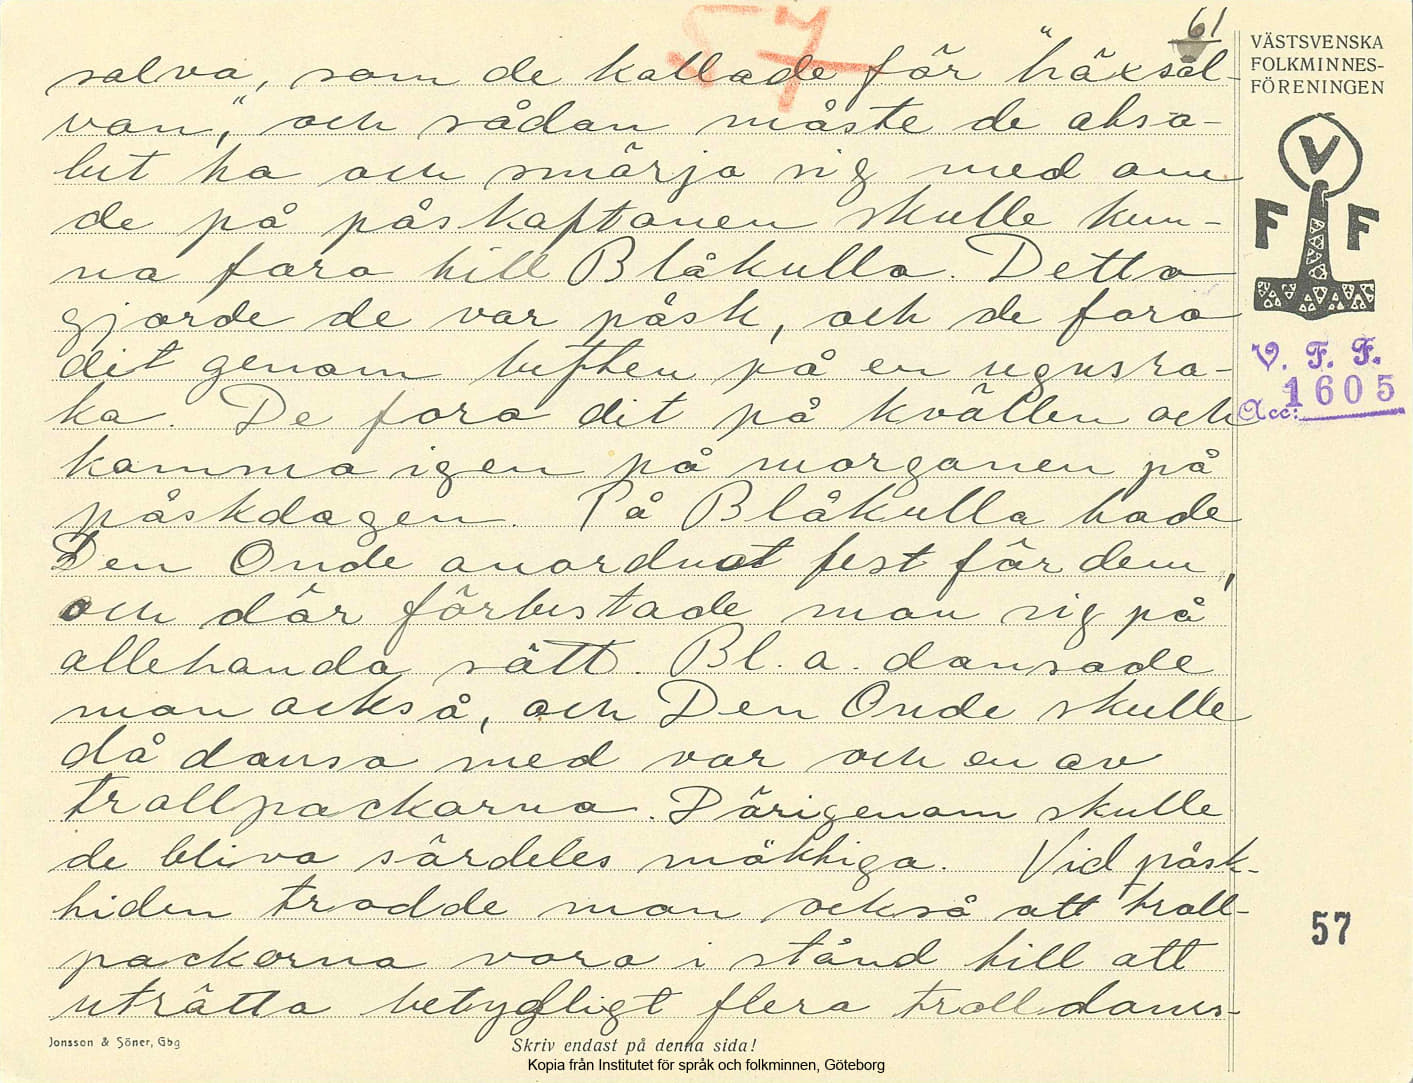 61
57
VÄSTSVENSKA
FOLKMINNES-
FÖRENINGEN
V
F F
V. F. F.
1605
Acc:
salva, som de kallade för "häxsal-
van," och sådan måste de abso-
lut ha och smörja sig med om
de på påskaftonen skulle kun-
na fara till Blåkulla. Detta
gjorde de var påsk, och de foro
dit genom luften på en ugnsra-
ka. De foro dit på kvällen och
kommo igen på morgonen på
påskdagen. På Blåkulla hade
Den Onde anordnat fest för dem,
och där förlustade man sig på
allehanda sätt. Bl. a. dansade
man också, och Den Onde skulle
då dansa med var och en av
trollpackorna. Därigenom skulle
de bliva särdeles mäktiga. Vid påsk-
tiden trodde man också att troll-
packorna voro i stånd till att
uträtta betydligt flera trolldoms-
57
Jonsson & Söner, Gbg
Skriv endast på denna sida!
Kopia från Institutet för språk och folkminnen, Göteborg